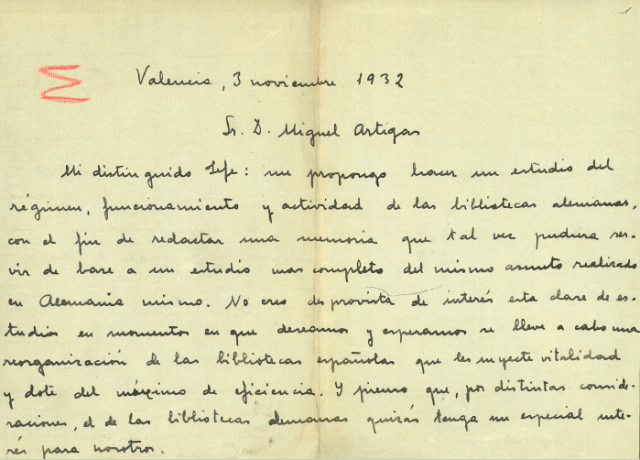 Valencia, 3 noviembre 1932
Sr. D. Miguel Artigas
Mi distinguido Jefe: me propongo hacer un estudio del
régimen, funcionamiento y actividad de las bibliotecas alemanas,
con el fin de redactar una memoria que tal vez pudiera ser-
vir de base a un estudio mas completo del mismo asunto realizado
en Alemania mismo. No creo desprovista de interés esta clase de es-
tudios en momentos en que deseamos y esperamos se lleve a cabo una
reorganización de las bibliotecas españolas que les inyecte vitalidad
y dote del máximo de eficiencia. Y pienso que, por distintas conside-
raciones, el de las bibliotecas alemanas quizás tenga un especial inte-
rés para nosotros.